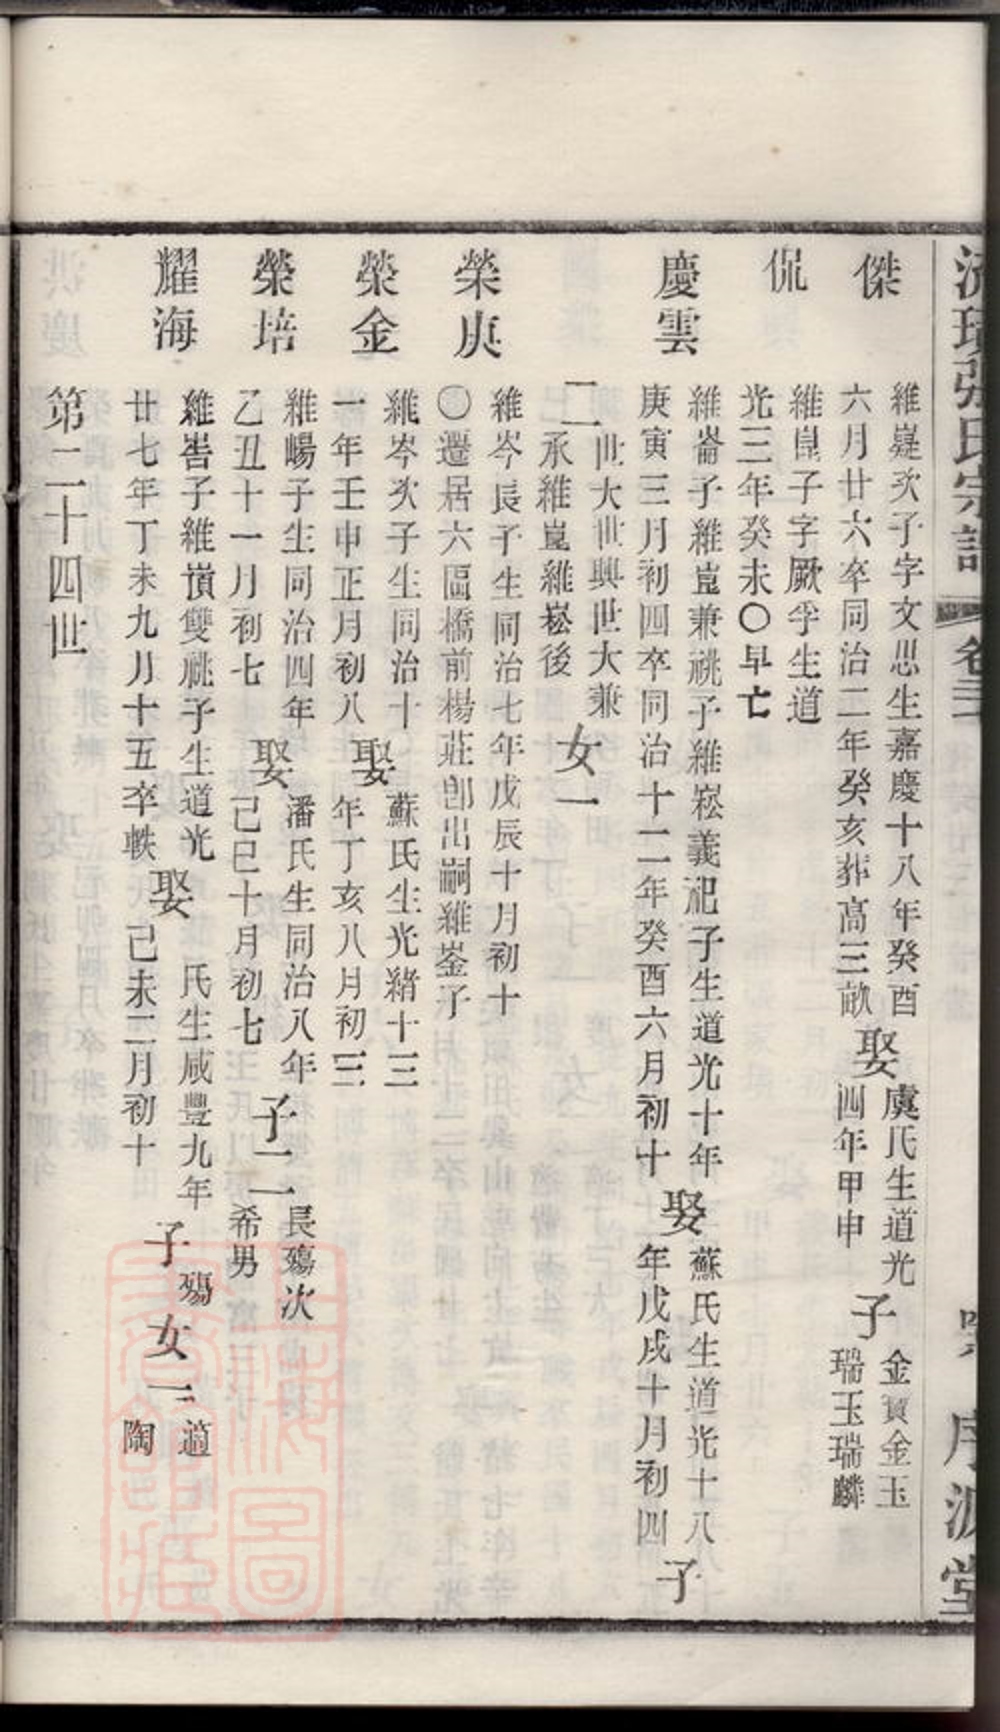 張氏宗譜 卷三 序源堂
傑
維嶷次子字文思生嘉慶十八年癸酉
六月廿六卒同治二年癸亥葬高三畝
娶
虞氏生道光
四年甲申
子
金寶金玉
瑞玉瑞麟
侃
維崑子字厥孚生道
光三年癸未〇早亡
慶雲
維崙子維崑兼祧子維崧義祀子生道光十年
庚寅三月初四卒同治十二年癸酉六月初十
娶
蘇氏生道光十八
年戊戌十月初四
子
二
世大世興世大兼
承維崑維崧後
女一
榮庚
維岑長子生同治七年戊辰十月初十
〇遷居六區橋前楊莊卽出嗣維崟子
榮金
維岑次子生同治十
一年壬申正月初八
娶
蘇氏生光緒十三
年丁亥八月初三
榮培
維崵子生同治四年
乙丑十一月初七
娶
潘氏生同治八年
己巳十月初七
子二
長殤次
希男
耀海
維峕子維嵿雙祧子生道光
廿七年丁未九月十五卒軼
娶
氏生咸豐九年
己未二月初十
子
殤
女一
適
陶
第二十四世